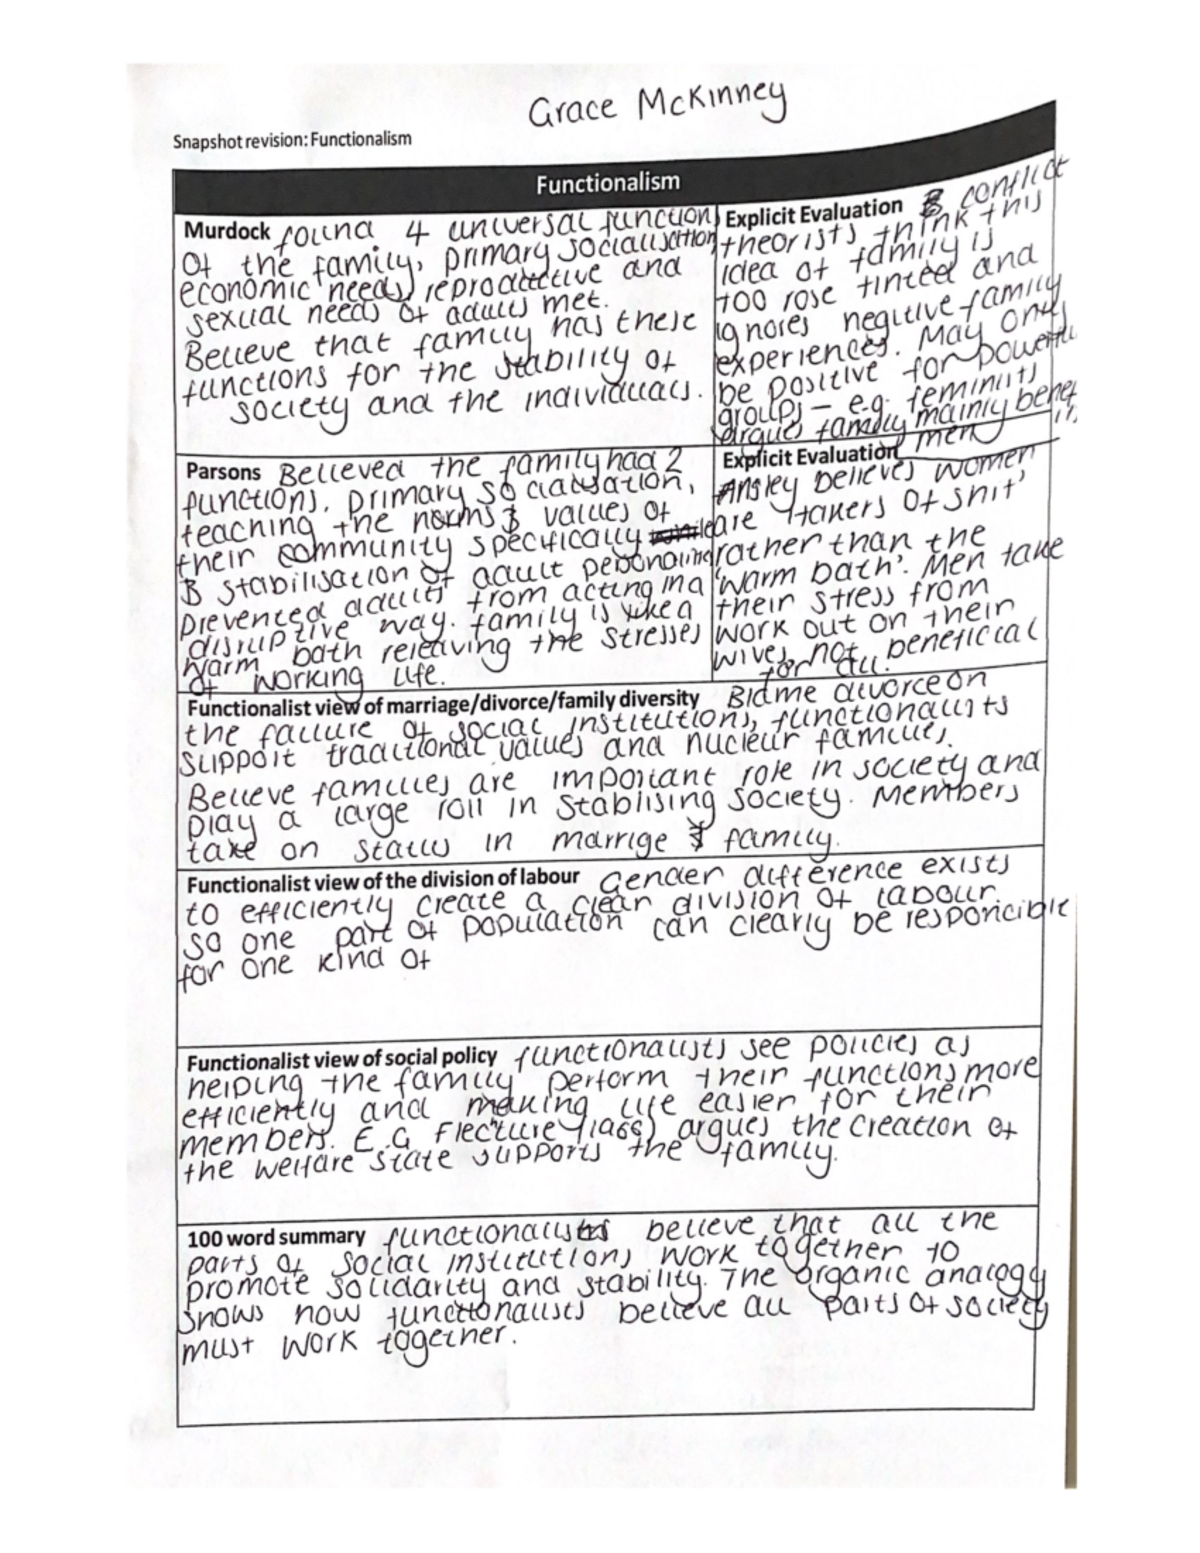 Grace McKinney
Snapshot revision: Functionalism
Functionalism
Murdock found 4 universal function
of the family, primary socialisation
economic needs, reproductive and
sexual needs of adults met.
Believe that family has these
functions for the stability of
society and the individuals.
Explicit Evaluation B conflict
theorists think this
idea of family is
too rose tinted and
ignores negitive family
experiences. May only
be positive for powerful
groups – e.g. feminists
argues family mainly benefits
men
Parsons Believed the family had 2
functions, primary socialisation,
teaching the norms & values of
their community specifically
B stabilisation of adult personalitie
prevented adults from acting in a
disruptive way. family is like a
warm bath relieving the stresses
of working life.
Explicit Evaluation
Ansley believes women
are 'takers of shit'
rather than the
'warm bath'. Men take
their stress from
work out on their
wives, not beneficial
for all.
Functionalist view of marriage/divorce/family diversity Blame divorce on
the failure of social institutions, functionalists
support traditional values and nuclear families.
Believe families are important role in society and
play a large roll in stablising society. Members
take on status in marrige & family.
Functionalist view of the division of labour Gender difference exists
to efficiently create a clear division of labour
so one part of population can clearly be responcible
for one kind of
Functionalist view of social policy functionalists see policies as
helping the family perform their functions more
efficiently and making life easier for their
members. E.G Flecture (1966) argues the creation of
the welfare state supports the family.
100 word summary functionalists believe that all the
parts of social institutions work together to
promote solidarity and stability. The organic analogy
shows how functionalists believe all parts of society
must work together.